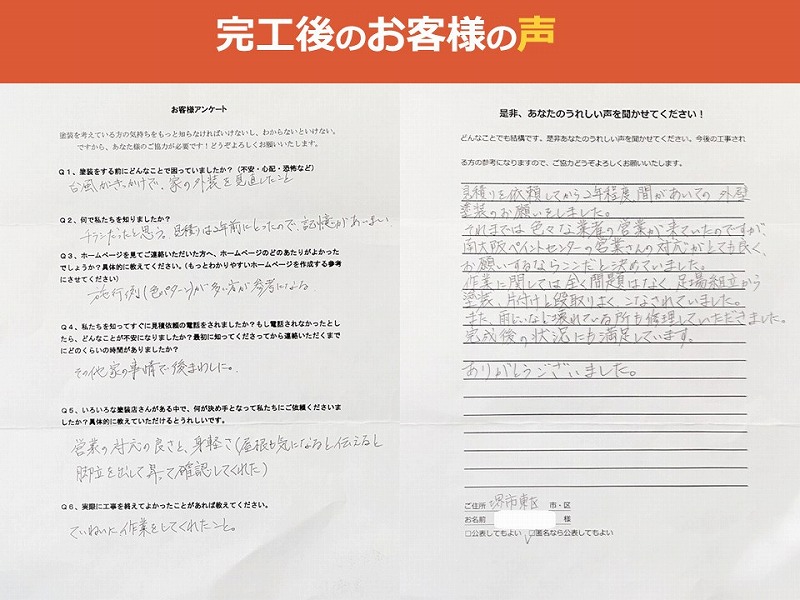 完工後のお客様の声
お客様アンケート
塗装を考えている方の気持ちをもっと知らなければいけないし、わからないといけない。
ですから、あなた様のご協力が必要です！どうぞよろしくお願いいたします。
Q１、塗装をする前にどんなことで困っていましたか？（不安・心配・恐怖など）
台風がきっかけで、家の外装を見直したこと
Q２、何で私たちを知りましたか？
チラシだったと思う。見積りは2年前にとったので、記憶があいまい
Q３、ホームページを見てご連絡いただいた方へ、ホームページのどのあたりがよかった
でしょうか？具体的に教えてください。（もっとわかりやすいホームページを作成する参考
にさせてください）
施行例（色パターン）が多い方が参考になる
Q４、私たちを知ってすぐに見積依頼の電話をされましたか？もし電話されなかったとし
たら、どんなことが不安になりましたか？最初に知ってくださってから連絡いただくまで
にどのくらいの時間がありましたか？
その他家の事情で後まわしした。
Q５、いろいろな塗装店さんがある中で、何が決め手となって私たちにご依頼くださいま
したか？具体的に教えていただけるとうれしいです。
営業の対応の良さと、身軽さ（屋根も気になると伝えると
脚立を出して昇って確認してくれた）
Q６、実際に工事を終えてよかったことがあれば教えてください。
ていねいに作業をしてくれたこと。
是非、あなたのうれしい声を聞かせてください！
どんなことでも結構です。是非あなたのうれしい声を聞かせてください。今後の工事され
る方の参考になりますので、ご協力どうぞよろしくお願いいたします。
見積りを依頼してから2年程度間があいての外壁
塗装のお願いをしました。
それまでは色々な業者の営業が来ていたのですが、
南大阪ペイントセンターの営業さんの対応がとても良く、
お願いするならここだと決めていました。
作業に関しては全く問題はなく足場組立から
塗装、片付けと段取りよくこなされていました。
また、雨どいなど壊れている所も修理していただきました。
完成後の状況にも満足しています。
ありがとうございました。
ご住所 堺市東区 市・区
お名前 様
□公表してもよい □匿名なら公表してもよい